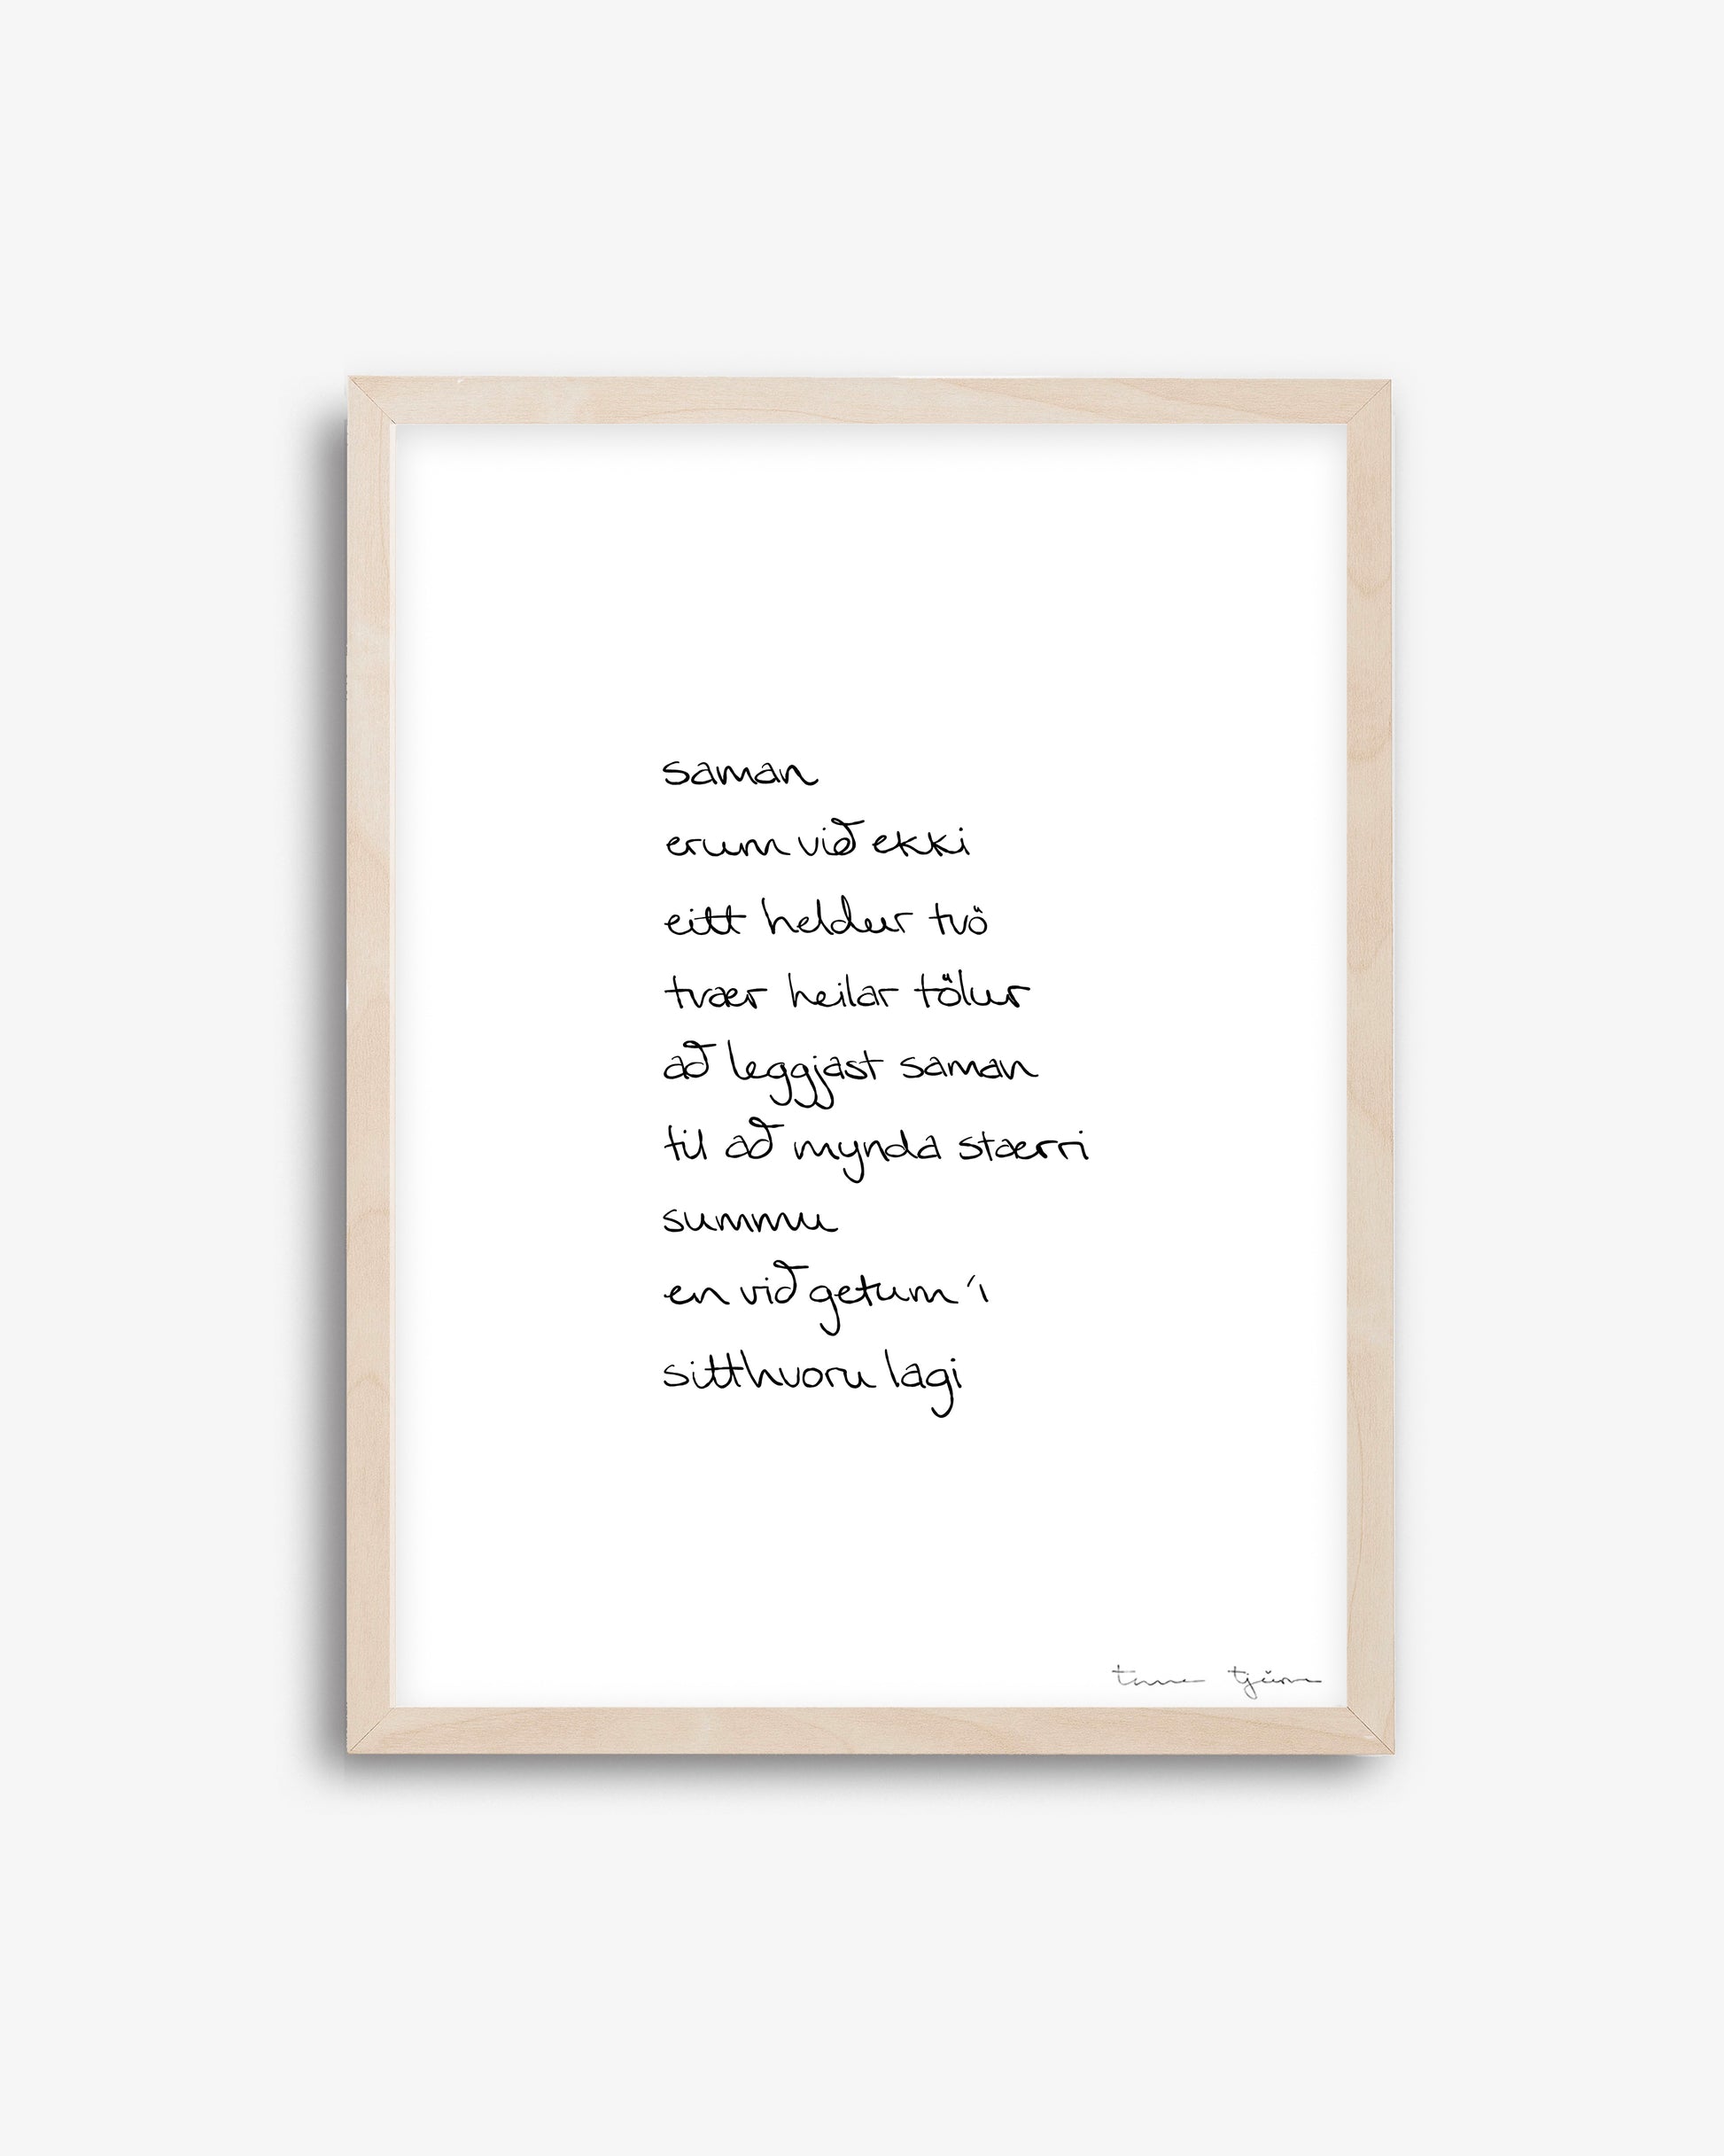 saman
erum við ekki
eitt heldur tvö
tvær heilar tölur
að leggjast saman
til að mynda stærri
summu
en við getum í
sitthvoru lagi